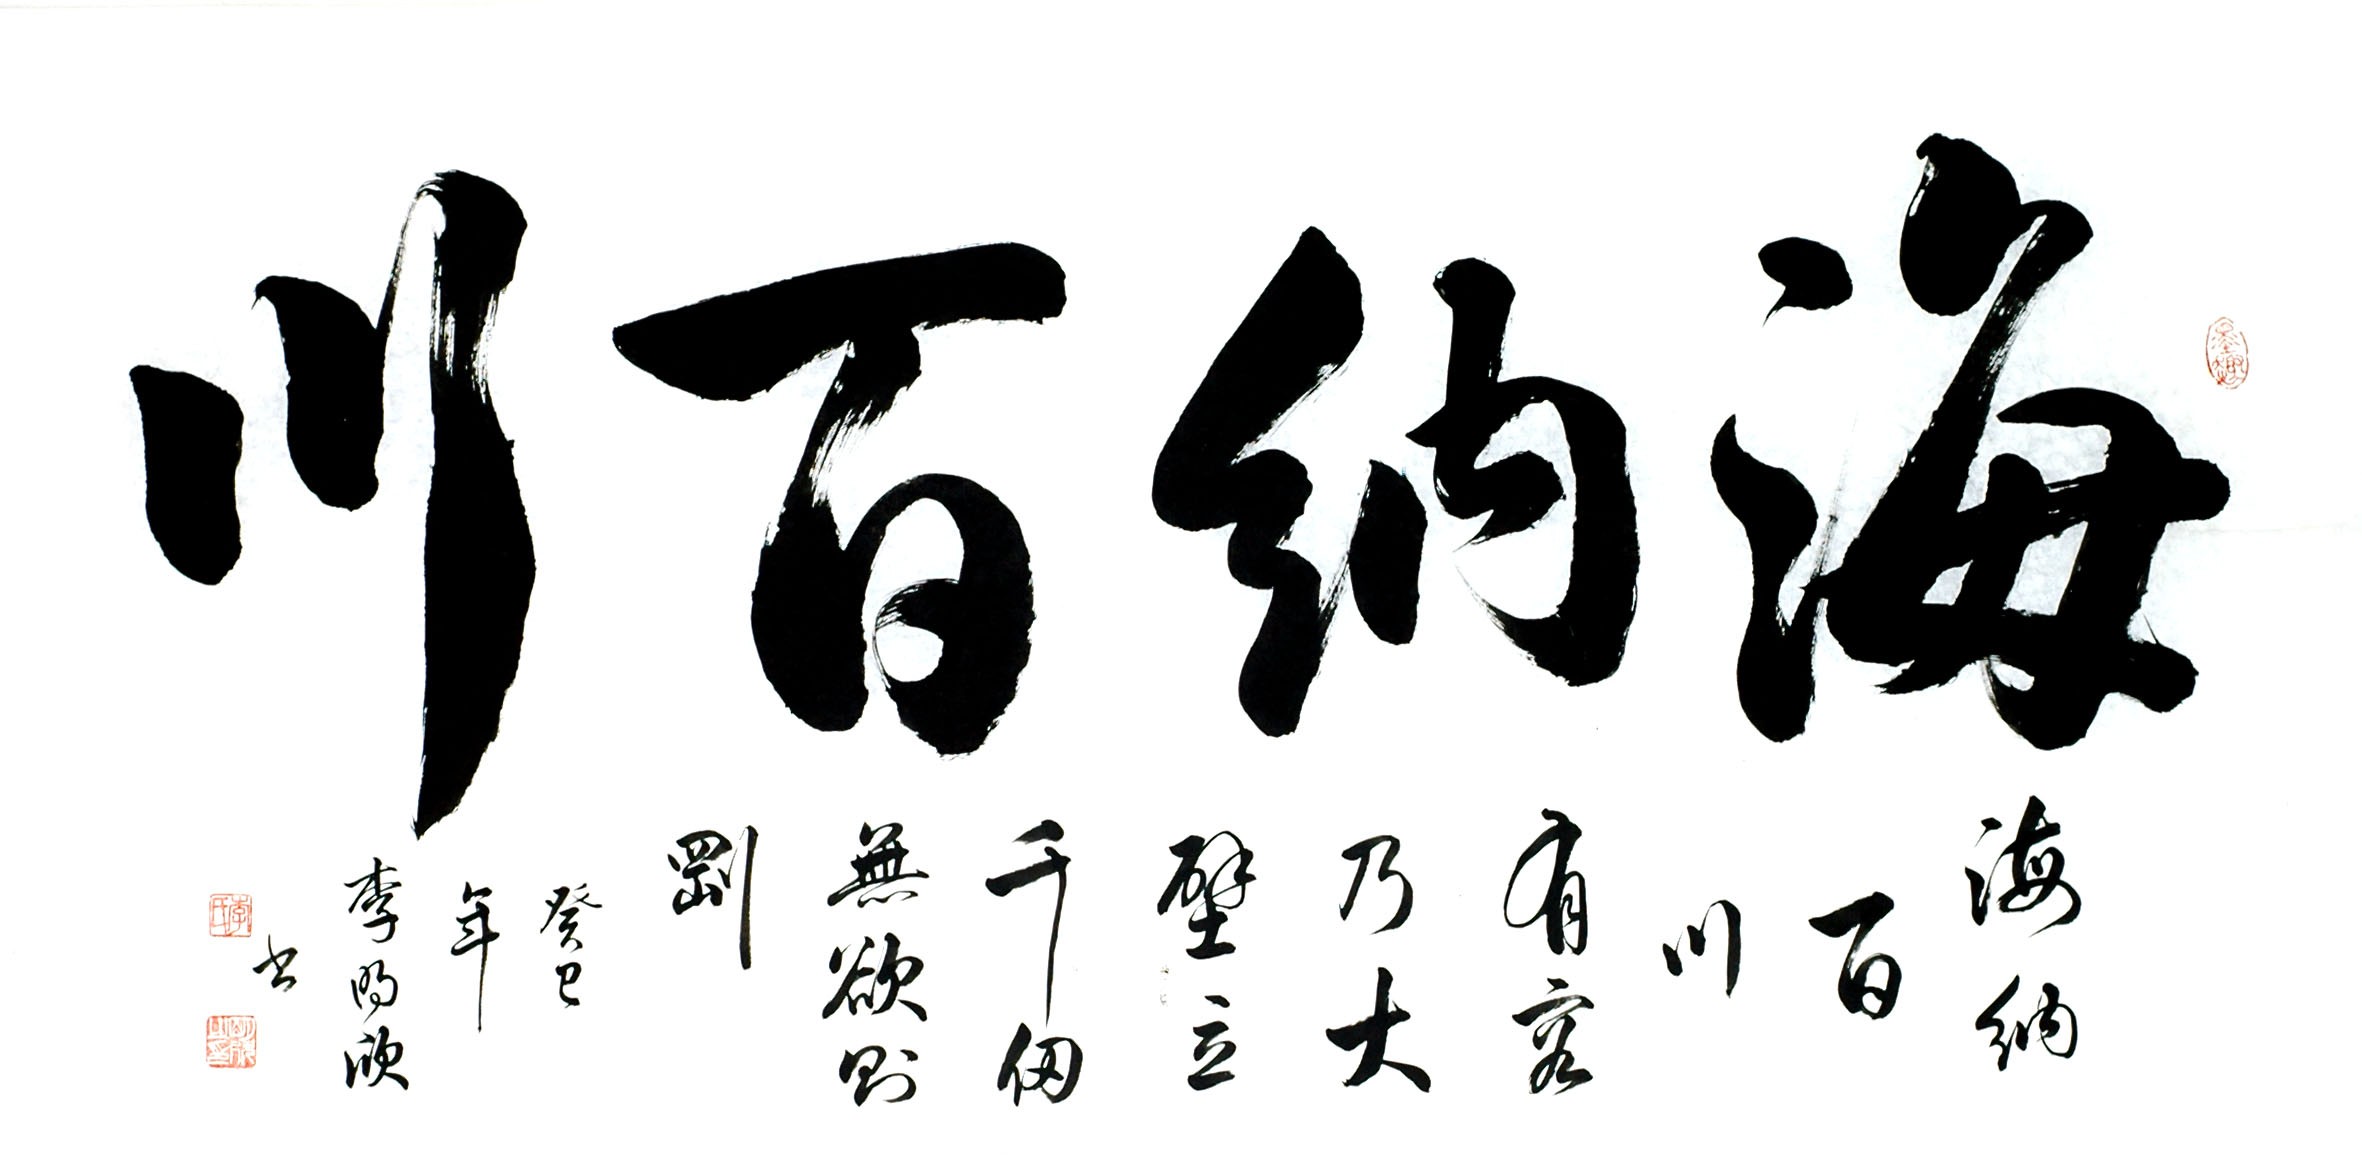 海納百川
海納
百
川
有容
乃大
壁立
千仞
無欲則
剛
癸巳
年
李明
书